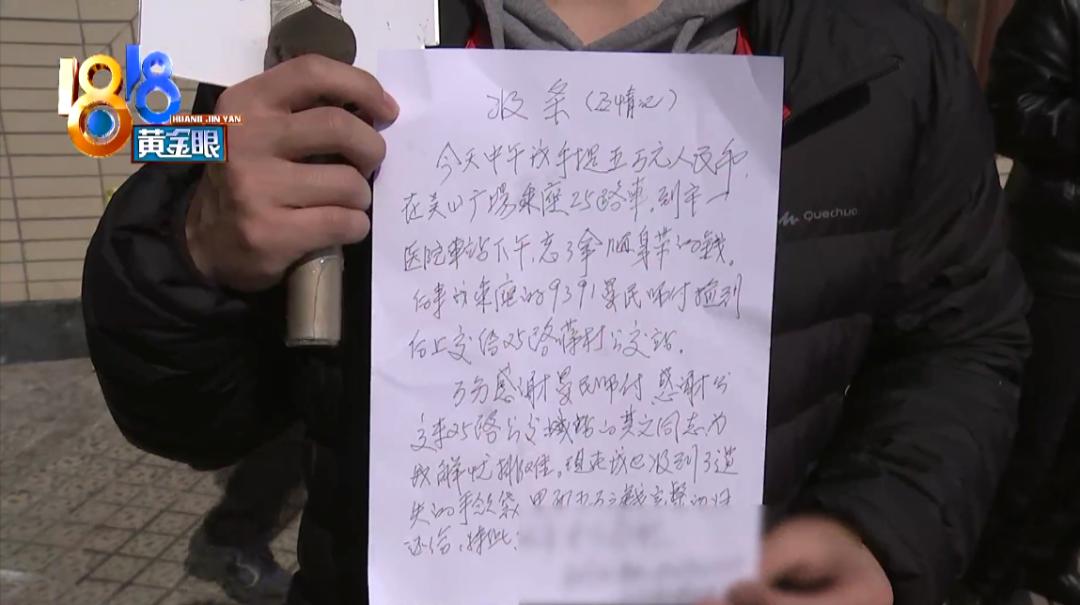 1818
HUANG JIN YAN
黄金眼
Quechua
收条（及情况）
今天中午我手提五万元人民币，
在吴山广场乘座25路车，到市一
医院车站下午，忘了拿随身带的钱。
后来我乘座的9391吴民师付捡到
后上交给25路蒋村公交站。
万分感谢吴民师付 感谢公
交车25路公交的其文同志为
我解忧排难。现在我已收到了遗
失的手 袋 里 万元钱 整的
还给，特此